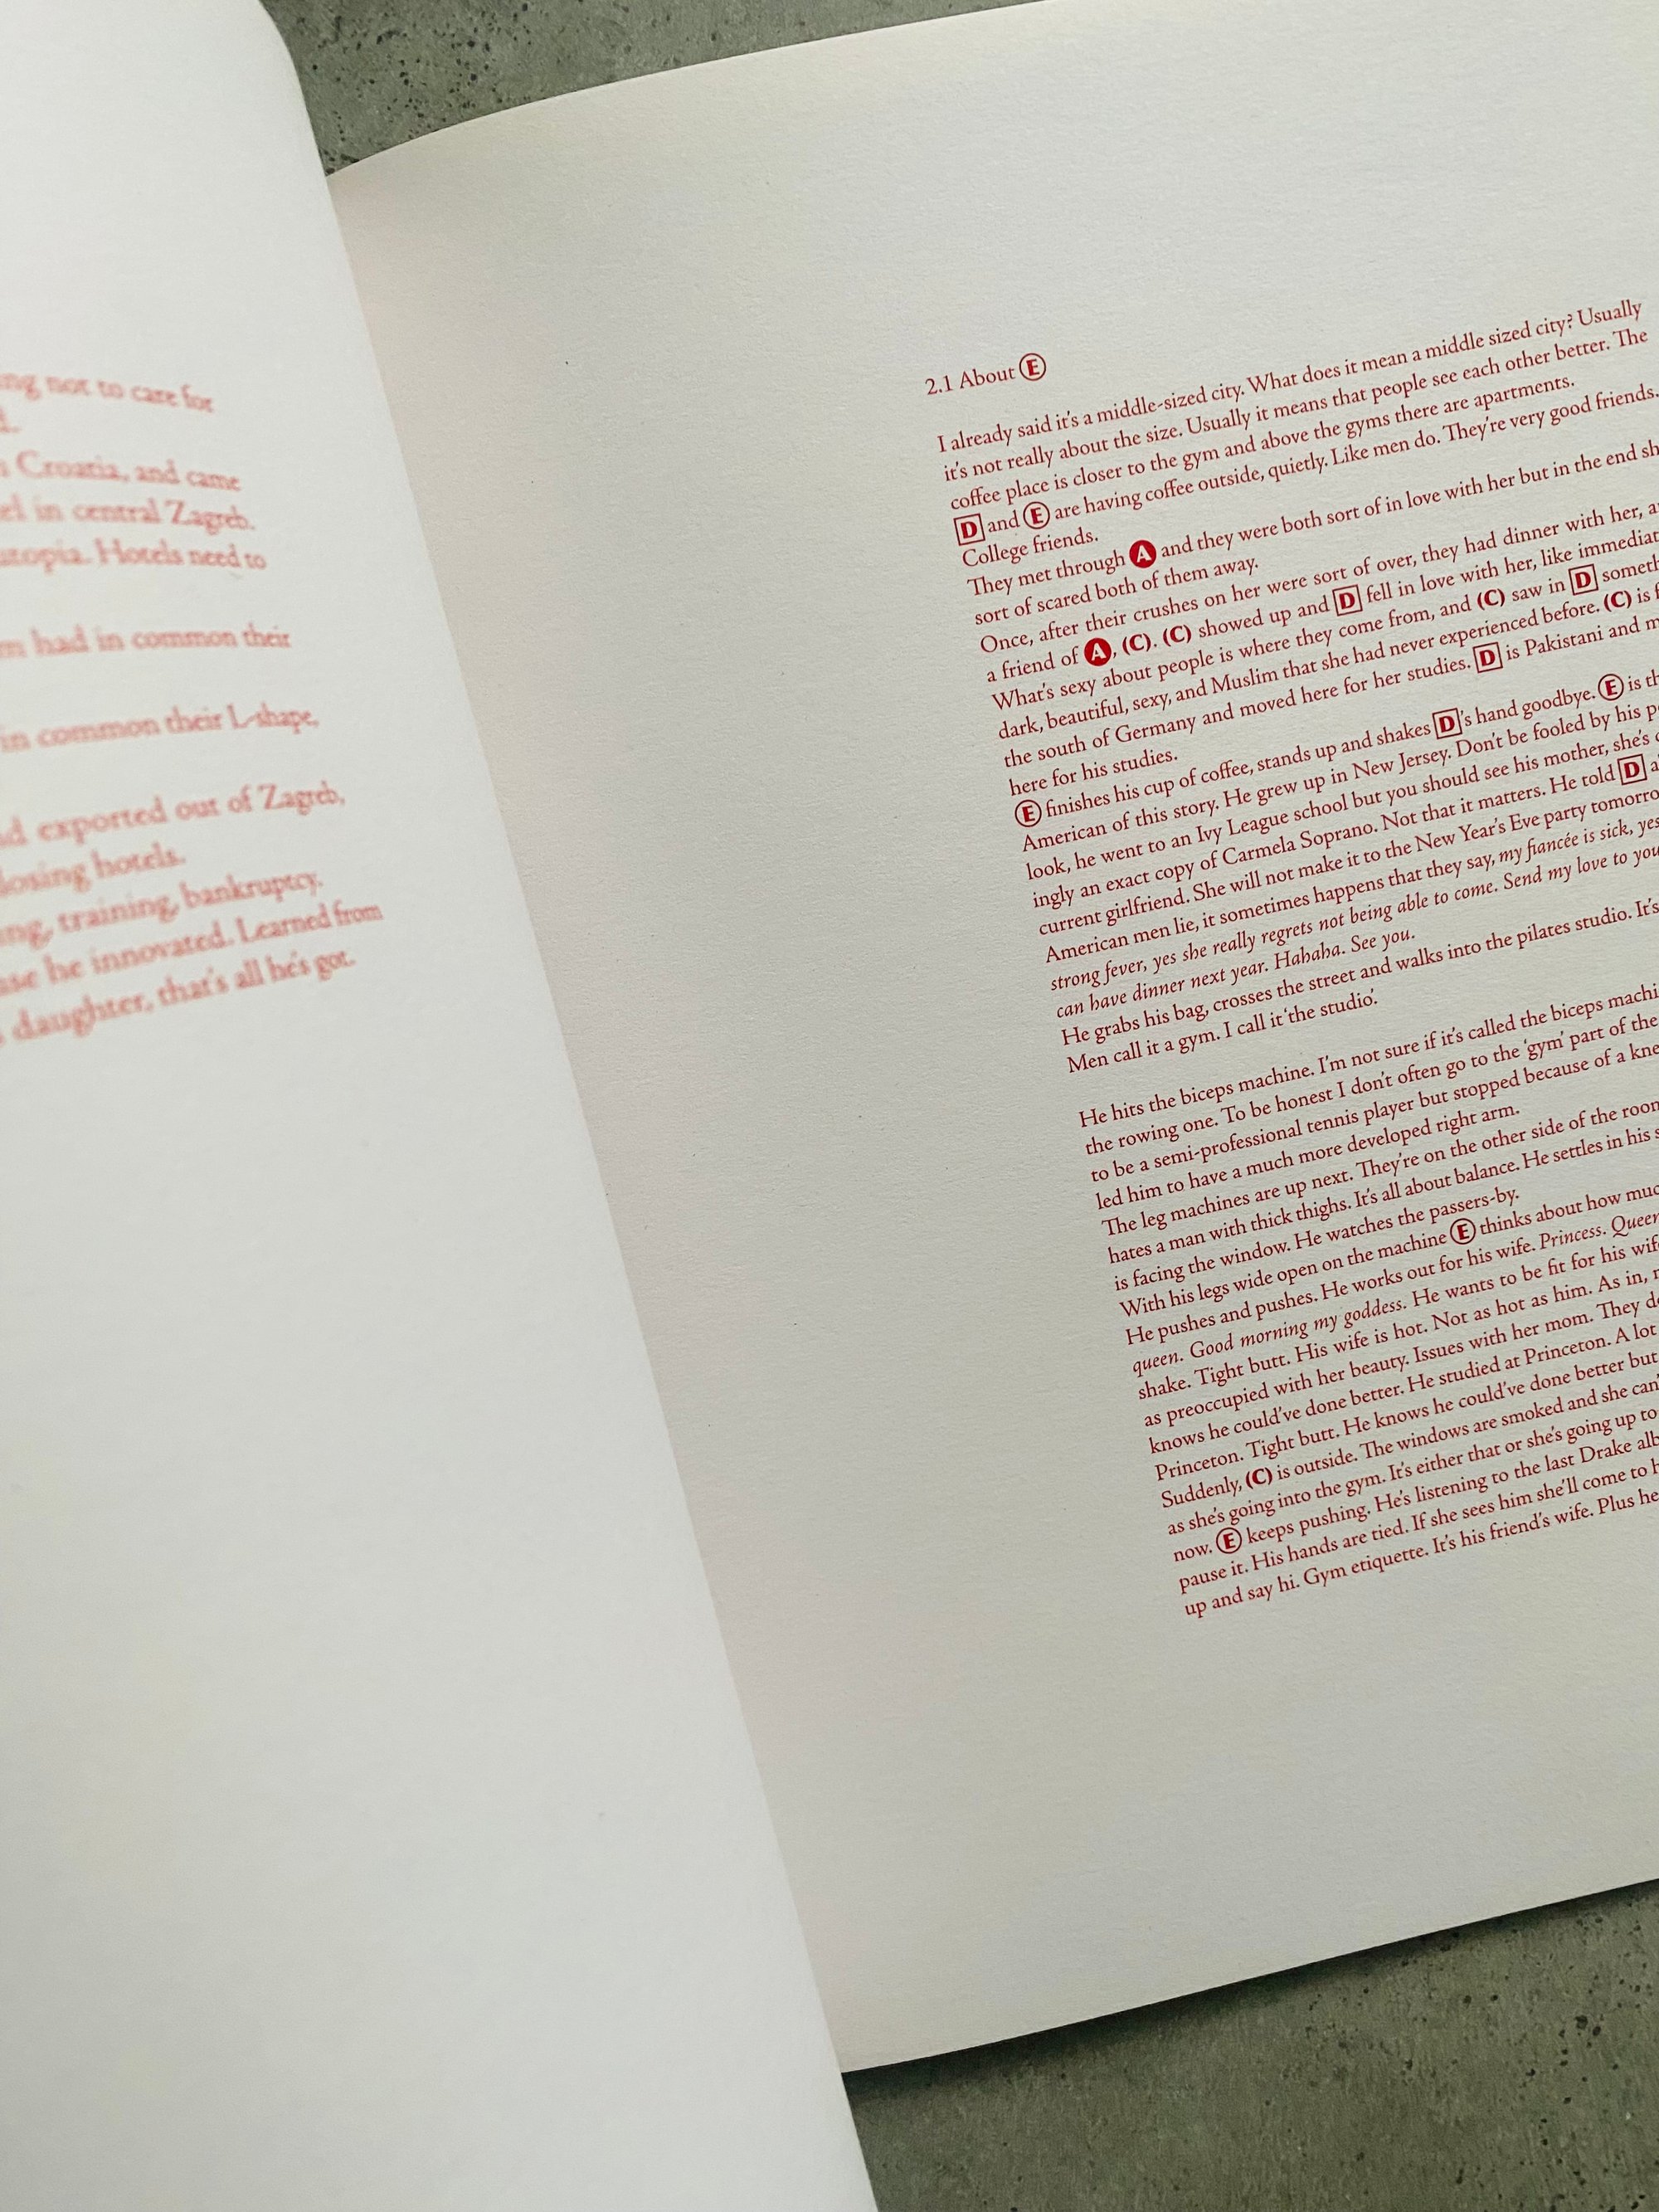 ng not to care for
Croatia, and came
el in central Zagreb.
utopia. Hotels need to
m had in common their
in common their L-shape,
d exported out of Zagreb,
losing hotels.
ng, training, bankruptcy.
ase he innovated. Learned from
daughter, that's all he's got.
2.1 About E
I already said it's a middle-sized city. What does it mean a middle sized city? Usually
it's not really about the size. Usually it means that people see each other better. The
coffee place is closer to the gym and above the gyms there are apartments.
D and E are having coffee outside, quietly. Like men do. They're very good friends.
College friends.
They met through A and they were both sort of in love with her but in the end sh
sort of scared both of them away.
Once, after their crushes on her were sort of over, they had dinner with her, a
a friend of A, (C). (C) showed up and D fell in love with her, like immediat
What's sexy about people is where they come from, and (C) saw in D someth
dark, beautiful, sexy, and Muslim that she had never experienced before. (C) is f
the south of Germany and moved here for her studies. D is Pakistani and m
here for his studies.
E finishes his cup of coffee, stands up and shakes D's hand goodbye. E is th
American of this story. He grew up in New Jersey. Don't be fooled by his p
look, he went to an Ivy League school but you should see his mother, she's
ingly an exact copy of Carmela Soprano. Not that it matters. He told D a
current girlfriend. She will not make it to the New Year's Eve party tomorro
American men lie, it sometimes happens that they say, my fiancée is sick, yes
strong fever, yes she really regrets not being able to come. Send my love to you
can have dinner next year. Hahaha. See you.
He grabs his bag, crosses the street and walks into the pilates studio. It's
Men call it a gym. I call it 'the studio'.
He hits the biceps machine. I'm not sure if it's called the biceps machi
the rowing one. To be honest I don't often go to the 'gym' part of the
to be a semi-professional tennis player but stopped because of a kne
led him to have a much more developed right arm.
The leg machines are up next. They're on the other side of the room
hates a man with thick thighs. It's all about balance. He settles in his s
is facing the window. He watches the passers-by.
With his legs wide open on the machine E thinks about how muc
He pushes and pushes. He works out for his wife. Princess. Queen
queen. Good morning my goddess. He wants to be fit for his wif
shake. Tight butt. His wife is hot. Not as hot as him. As in, n
as preoccupied with her beauty. Issues with her mom. They d
knows he could've done better. He studied at Princeton. A lot
Princeton. Tight butt. He knows he could've done better but
Suddenly, (C) is outside. The windows are smoked and she can'
as she's going into the gym. It's either that or she's going up to
now. E keeps pushing. He's listening to the last Drake alb
pause it. His hands are tied. If she sees him she'll come to h
up and say hi. Gym etiquette. It's his friend's wife. Plus he